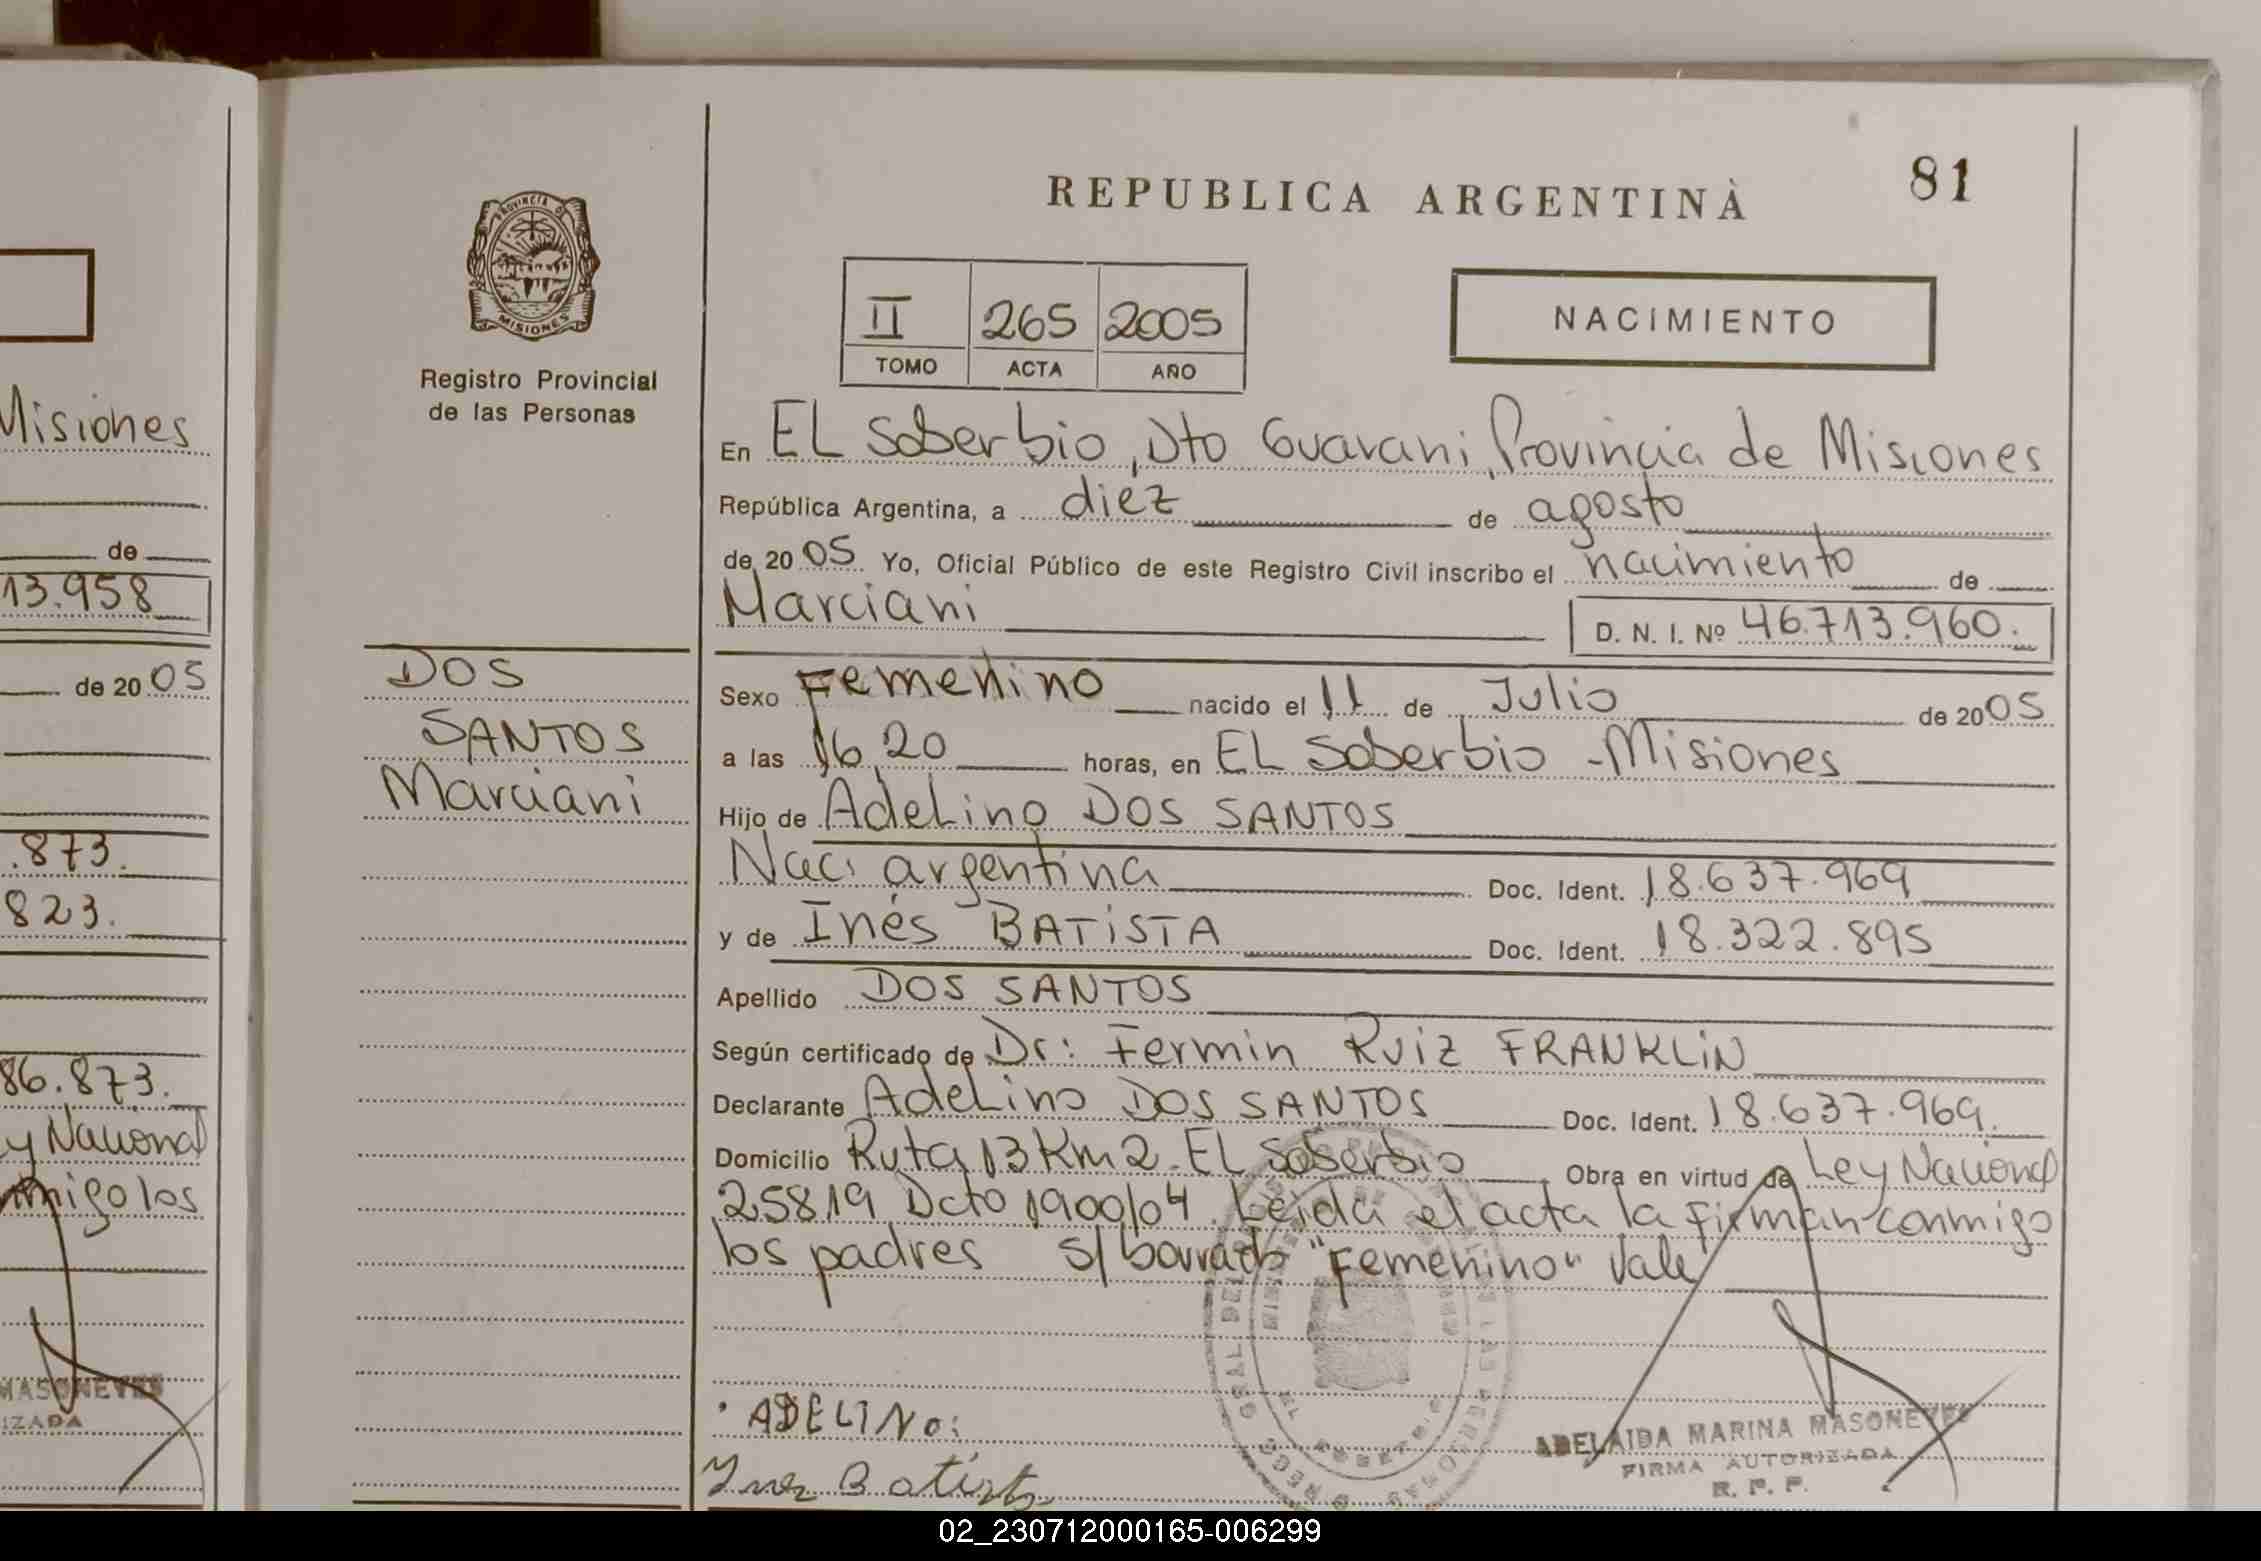 Misiones
de
13.958
de 20 05
.873.
823.
86.873.
y Nacional
nmigo los
MASONEVES
IZADA
PROVINCIA DE
MISIONES
Registro Provincial
de las Personas
DOS
SANTOS
Marciani
REPUBLICA ARGENTINA
81
II 265 2005
TOMO ACTA AÑO
NACIMIENTO
En EL Soberbio, Dto Guarani, Provincia de Misiones
República Argentina, a diez de agosto
de 20 05 Yo, Oficial Público de este Registro Civil inscribo el nacimiento de
Marciani
D. N. I. Nº 46.713.960.
Sexo Femenino nacido el 11 de Julio de 20 05
a las 16,20 horas, en EL Soberbio - Misiones
Hijo de Adelino DOS SANTOS
Nac. argentina Doc. Ident. 18.637.969
y de Inés BATISTA Doc. Ident. 18.322.895
Apellido DOS SANTOS
Según certificado de Dr: Fermin Ruiz FRANKLIN
Declarante Adelino DOS SANTOS Doc. Ident. 18.637.969.
Domicilio Ruta 13 Km 2. EL Soberbio Obra en virtud de Ley Nacional
25819 Dcto 1900/04. Leida el acta la firman conmigo
los padres s/borrado "Femenino" Vale
ADELINO:
Inez Batista
ADELAIDA MARINA MASONEVES
FIRMA AUTORIZADA
R. P. P.
02_230712000165-006299